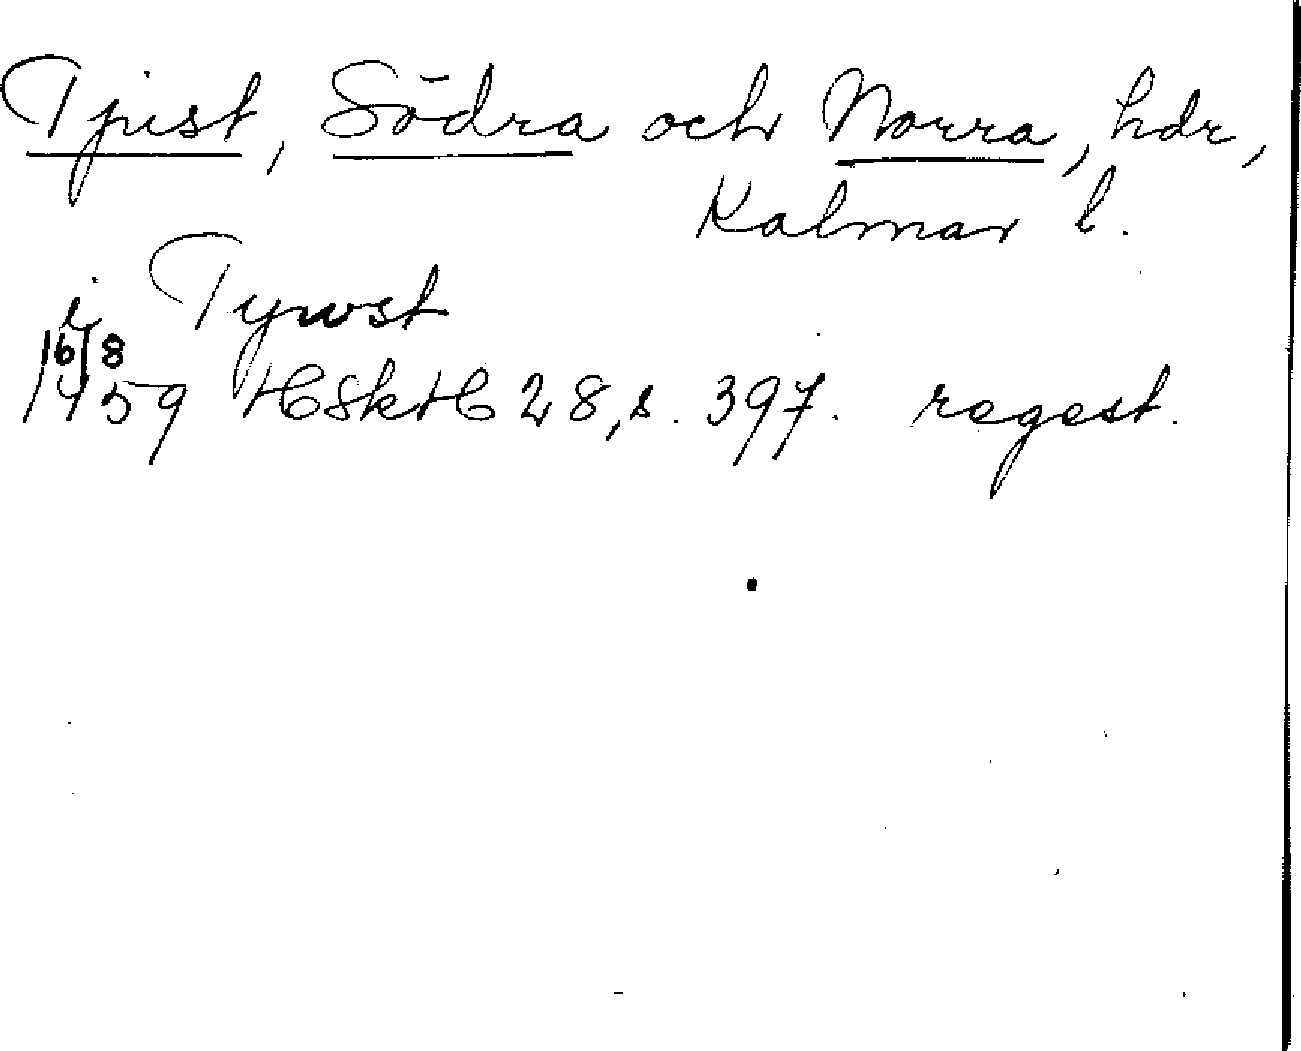 Tjust, Södra och Norra, hdr,
Kalmar l.
i Tywst
16/8
1459 HSkH 28, s. 397. regest.